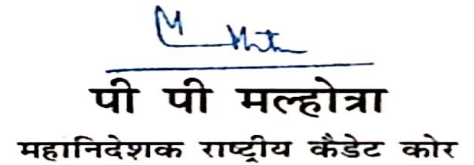 पी पी मल्होत्रा
महानिदेशक राष्ट्रीय कैडेट कोर